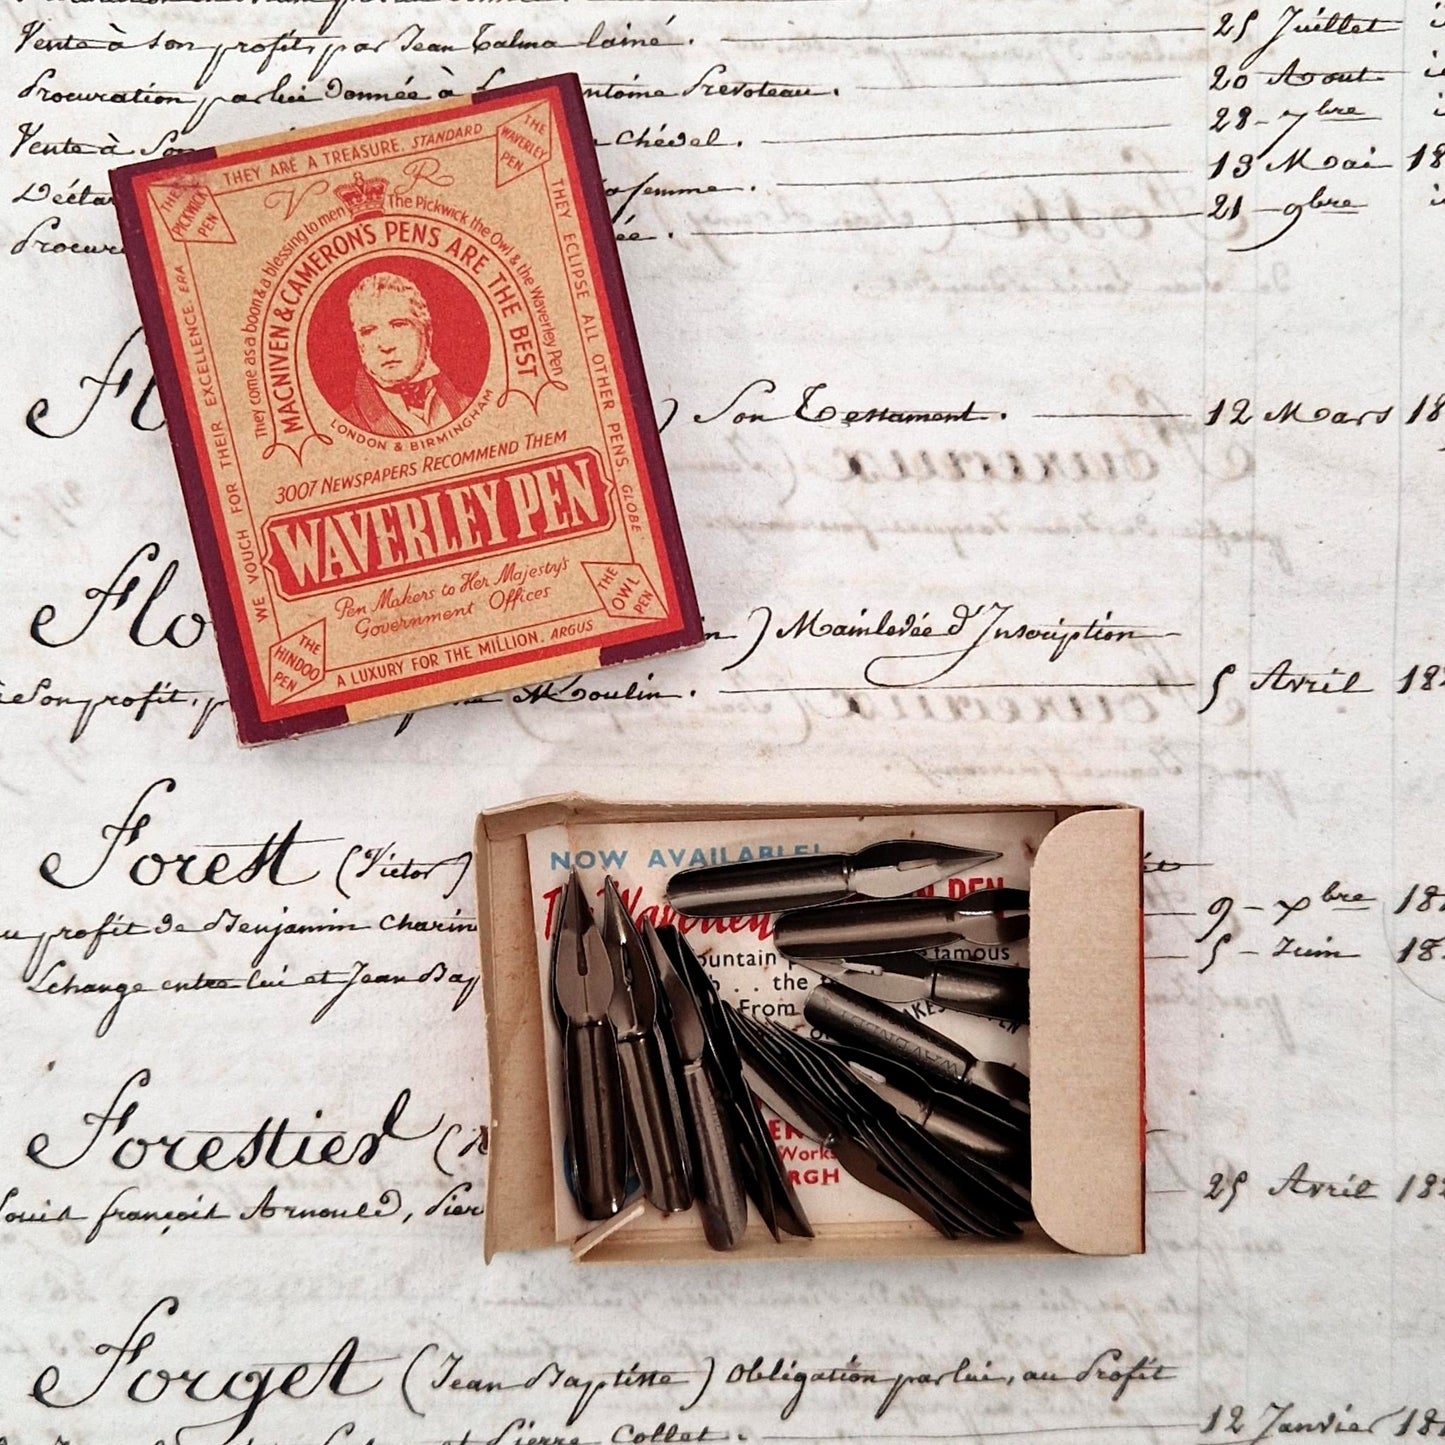 Vente à Son profit, par Jean Talma lainé. 25 Juillet
Procuration par lui Donnée à ntoine Prevoteau. 20 Aout
Vente à Son Chédel. 28 7bre
Déclar femme. 13 Mai 18
Procur ée. 21 9bre
THEY ARE A TREASURE. STANDARD
THE PICKWICK PEN
THE WAVERLEY PEN
V R
They come as a boon & a blessing to men The Pickwick, the Owl & the Waverley Pen
MACNIVEN & CAMERON'S PENS ARE THE BEST
LONDON & BIRMINGHAM
3007 NEWSPAPERS RECOMMEND THEM
WAVERLEY PEN
Pen Makers to Her Majesty's
Government Offices
THE HINDOO PEN
THE OWL PEN
A LUXURY FOR THE MILLION. ARGUS
WE VOUCH FOR THEIR EXCELLENCE. ERA
THEY ECLIPSE ALL OTHER PENS. GLOBE
) Son Testament. 12 Mars 18
Flo in) Mainlevée d'Inscription
Son profit, p Moulin. 5 Avril 18
Forest (Victor)
au profit de Benjamin Charin 9 Xbre 18
Echange entre lui et Jean Bap 5 Juin 18
NOW AVAILABLE!
The Waverley PEN
ountain famous
. . the
From
Works
RGH
Forestier (
Louis françois Arnould, Pier 25 Avril 18
Forget (Jean Baptiste) Obligation par lui, au Profit
et Pierre Collet. 12 Janvier 18